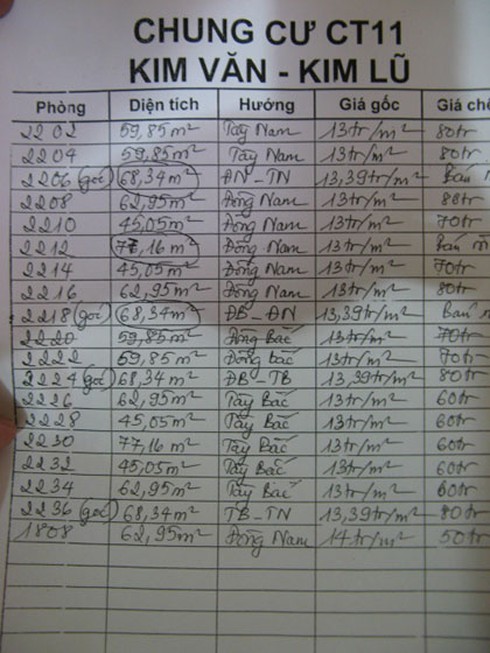 CHUNG CƯ CT11
KIM VĂN - KIM LŨ
Phòng Diện tích Hướng Giá gốc Giá chê
2202 59,85m² Tây Nam 13tr/m² 80tr
2204 59,85m² Tây Nam 13tr/m² 80tr
2206 (góc) 68,34m² ĐN-TN 13,39tr/m² Bán
2208 62,95m² Đông Nam 13tr/m² 80tr
2210 45,05m² Đông Nam 13tr/m² 70tr
2212 77,16m² Đông Nam 13tr/m² Bán
2214 45,05m² Đông Nam 13tr/m² 70tr
2216 62,95m² Đông Nam 13tr/m² 80tr
2218 (góc) 68,34m² ĐB-ĐN 13,39tr/m² Bán
2220 59,85m² Đông Bắc 13tr/m² 70tr
2222 59,85m² Đông bắc 13tr/m² 70tr
2224 (góc) 68,34m² ĐB-TB 13,39tr/m² 80tr
2226 62,95m² Tây Bắc 13tr/m² 60tr
2228 45,05m² Tây Bắc 13tr/m² 60tr
2230 77,16m² Tây Bắc 13tr/m² 60tr
2232 45,05m² Tây Bắc 13tr/m² 60tr
2234 62,95m² Tây Bắc 13tr/m² 60tr
2236 (góc) 68,34m² TB-TN 13,39tr/m² 80tr
1808 62,95m² Đông Nam 14tr/m² 50tr